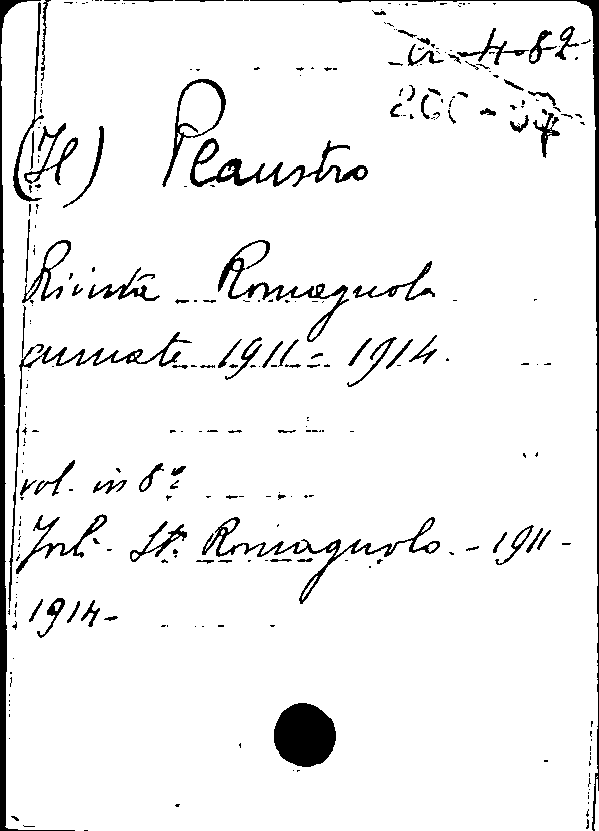 a-4-82.
200-37
(Il) Plaustro
Rivista Romagnola
annate 1911-1914.
vol. in 8º
Forlì. St. Romagnolo. - 1911-
1914-